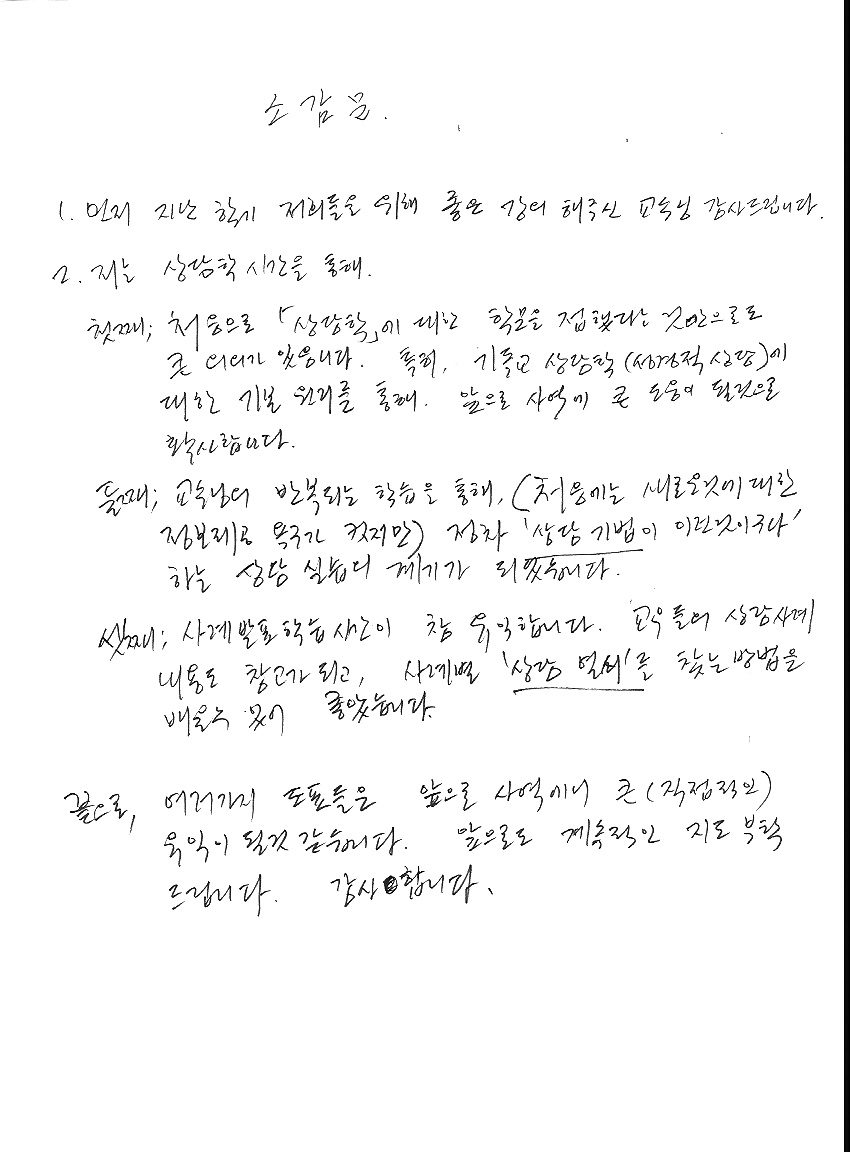 소감문.
1. 먼저 지난 학기 저희들을 위해 좋은 강의 해주신 교수님 감사드립니다.
2. 저는 상담학 시간을 통해.
첫째; 처음으로 「상담학」에 대한 학문을 접했다는 것만으로도
큰 의미가 있읍니다. 특히, 기독교 상담학(성경적 상담)에
대한 기본 원리를 통해. 앞으로 사역에 큰 도움이 될것으로
확신합니다.
둘째; 교수님의 반복되는 학습을 통해, (처음에는 새로운것에 대한
정보제공 욕구가 컷지만) 점차 '상담 기법이 이런것이구나'
하는 상담 실습의 계기가 되었습니다.
셋째; 사례발표학습시간이 참 유익합니다. 교우들의 상담사례
내용도 참고가 되고, 사례별 '상담 열쇠'를 찾는 방법을
배울수 있어 좋았습니다.
끝으로, 여러가지 도표들은 앞으로 사역에 큰(직접적인)
유익이 될것 같습니다. 앞으로도 계속적인 지도 부탁
드립니다. 감사합니다.